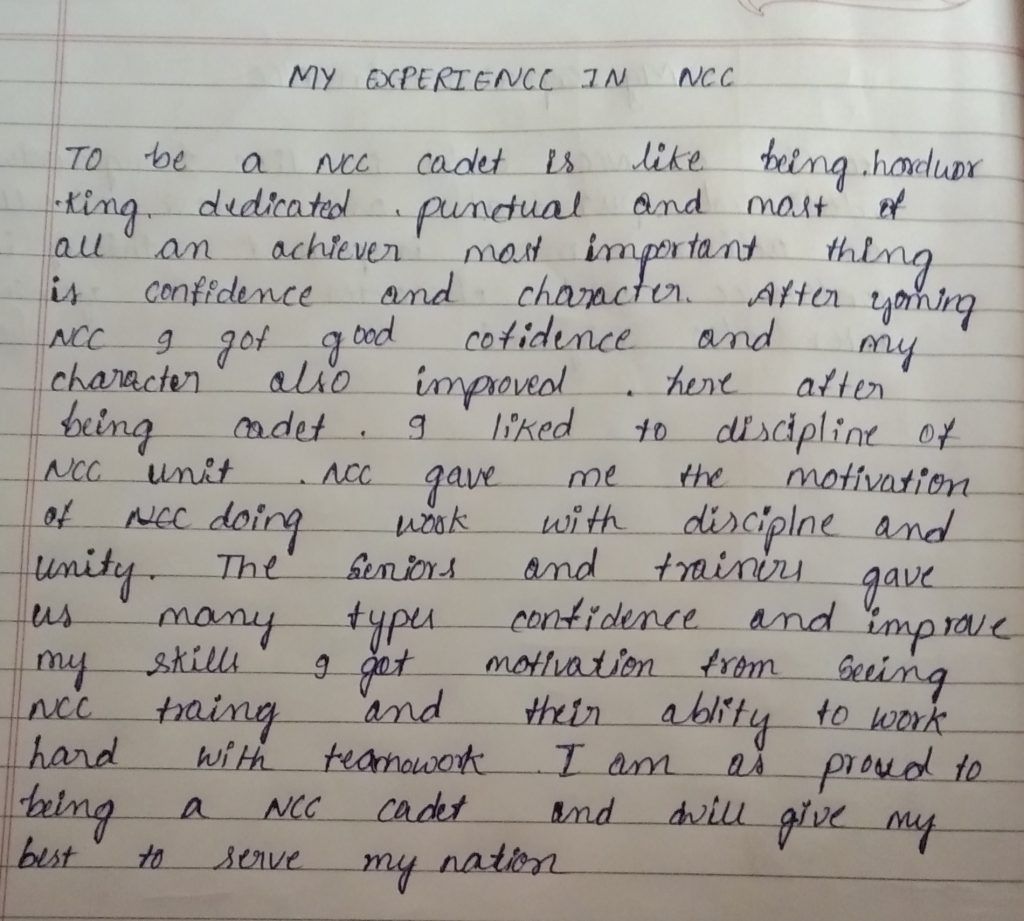 MY EXPERIENCC IN NCC
TO be a NCC cadet is like being.horduor
-king. dedicated . punctual and most of
all an achiever most important thing
is confidence and character. After yoining
NCC I got good cofidence and my
character also improved . here after
being cadet . I liked to discipline of
NCC unit . NCC gave me the motivation
of NCC doing work with disciplne and
unity. The seniors and trainers gave
us many types confidence and improve
my skills I got motivation from seeing
NCC traing and their ablity to work
hard with teamowork I am as proud to
being a NCC cadet and will give my
best to serve my nation